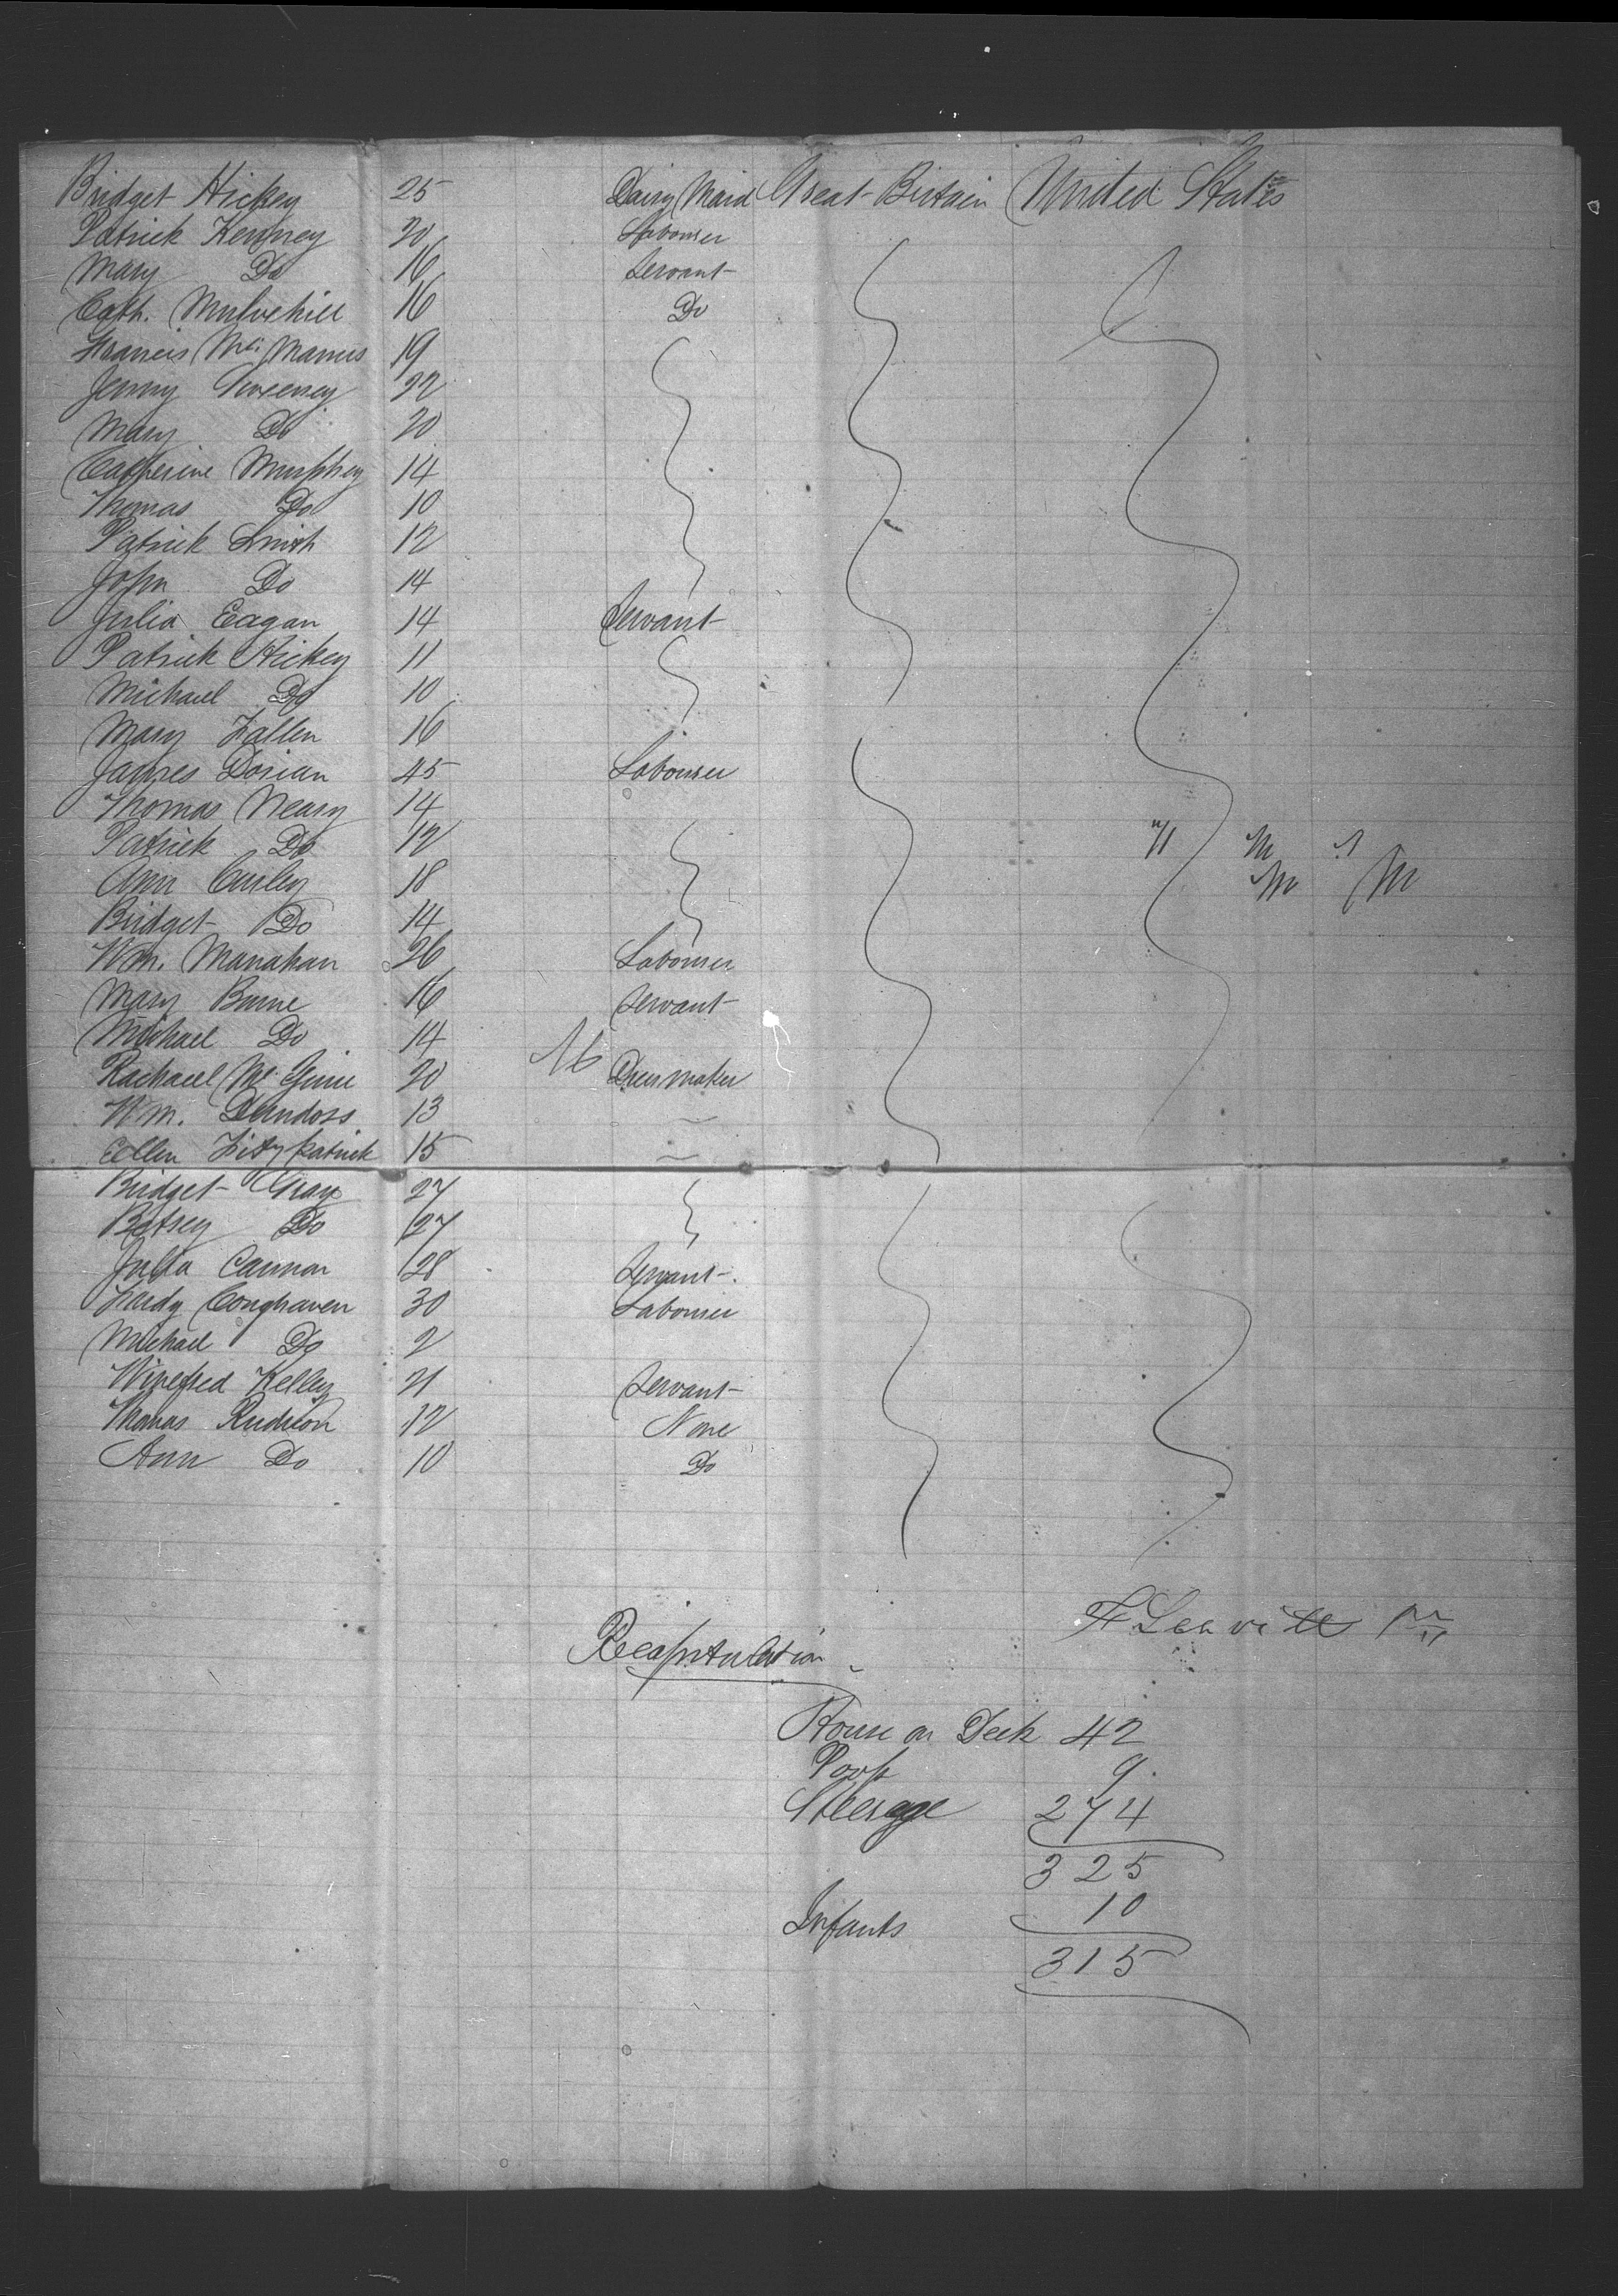 Bridget Hickey 25 Dairy Maid Great Britain United States
Patrick Kenney 20 Labourer
Mary Do 16 Servant
Cath. Mulvehill 16 Do
Francis Mc Manus 19
Jenny Sweeney 22
Mary Do 20
Catherine Murphey 14
Thomas Do 10
Patrick Smith 12
John Do 14
Julia Eagan 14 Servant
Patrick Hickey 11
Michael Do 10
Mary Fallen 16
James Dorian 45 Labourer
Thomas Neary 14
Patrick Do 12
Ann Curley 18
Bridget Do 14
Wm. Manahan 26 Labourer
Mary Burne 16 Servant
Michael Do 14
Rachael Mc Ginie 20 Dress maker
Wm. Dandoss 13
Ellen Fitzpatrick 15
Bridget Gray 27
Betsey Do 27
Julia Cannon 28 Servant
Conghaven 30 Labourer
Michael Do 2
Winefred Kelley 21 Servant
Thomas 12 None
Ann Do 10 Do
F Leavitt
Recapitulation
House on Deck 42
Poop 9
Steerage 274
325
Infants 10
315